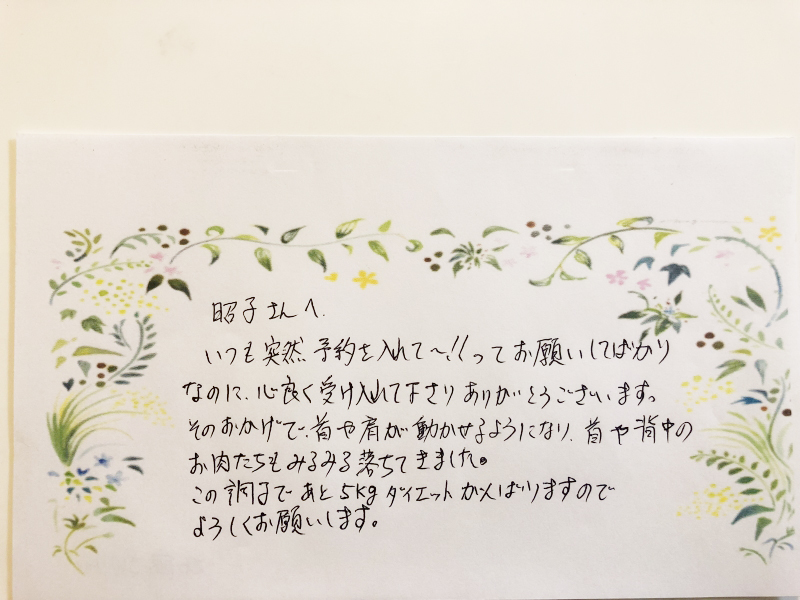 昭子さんへ.
いつも突然予約を入れて〜!!ってお願いしてばかり
なのに、心良く受け入れて下さりありがとうございます。
そのおかげで、首や肩が動かせるようになり、首や背中の
お肉たちもみるみる落ちてきました。
この調子であと5kgダイエットがんばりますので
よろしくお願いします。